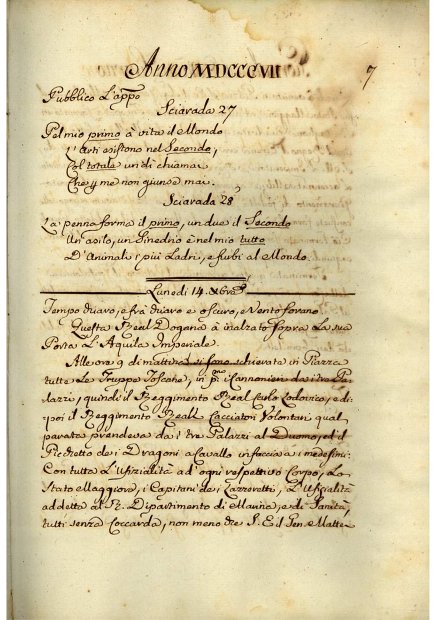 Anno MDCCCVII
7
Pubblico L'app.o
Sciarada 27
Pel mio primo à vita il Mondo
L'Arti esistono nel Secondo,
Col totale un dì chiamai
Che p me non giunse mai.
Sciarada 28
La penna forma il primo, un due il Secondo
Un asilo, un Sinedrio è nel mio tutto
D'Animali i più Ladri, e furbi al Mondo.
Lunedì 14. Xbre
Tempo vario, e frà chiaro e oscuro, e Vento
Questa Real Dogana à inalzato sopra La sua
Porta L'Aquila Imperiale.
Alle ore 9 di mattina si sono schierate in Piazza
tutte Le Truppe Toscane, in p.mi i Cannonieri da i tre Pa-
lazzi, quindi il Reggimento Real Carlo Lodovico, e di-
poi il Reggimento Reali Cacciatori Volontari qual
parata prendeva da i tre Palazzi al Duomo, ed il
Picchetto dei Dragoni a Cavallo in faccia a i medesimi:
Con tutta L'Ufizialità ad ogni respettivo Corpo, Lo
Stato Maggiore, i Capitani de i Lazzeretti, L'Ufizialità
addetta al R. Dipartimento di Marina, e di Sanità,
tutti senza Coccarda, non meno che S. E. il Gen.